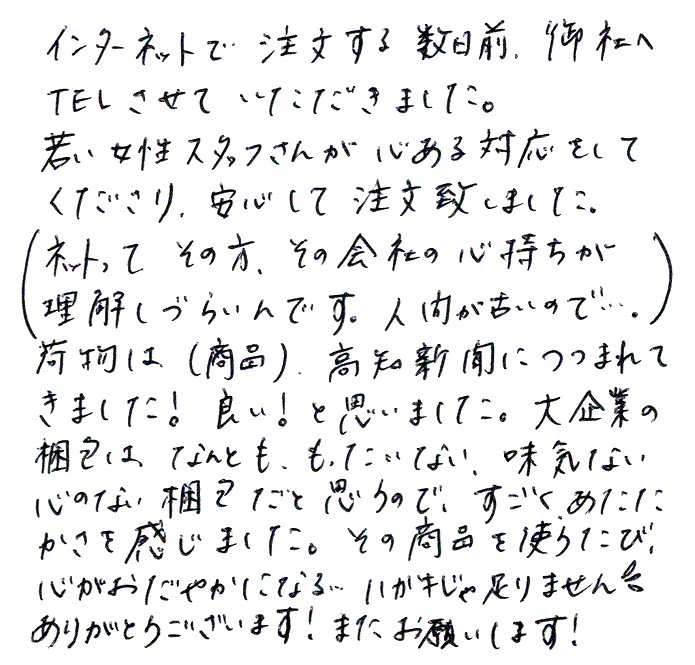 インターネットで 注文する 数日前、御社へ
TELさせて いただきました。
若い女性スタッフさんが 心ある対応をして
くださり、安心して 注文致しました。
(ネットって その方、その会社の心持ちが
理解しづらいんです。人間が古いので…。)
荷物は(商品)、高知新聞につつまれて
きました! 良い! と思いました。大企業の
梱包は なんとも、もったいない、味気ない
心のない 梱包だと思うので、すごく あたた
かさを感じました。その商品を使うたび、
心がおだやかになる… ハガキじゃ足りません
ありがとうございます! またお願いします!